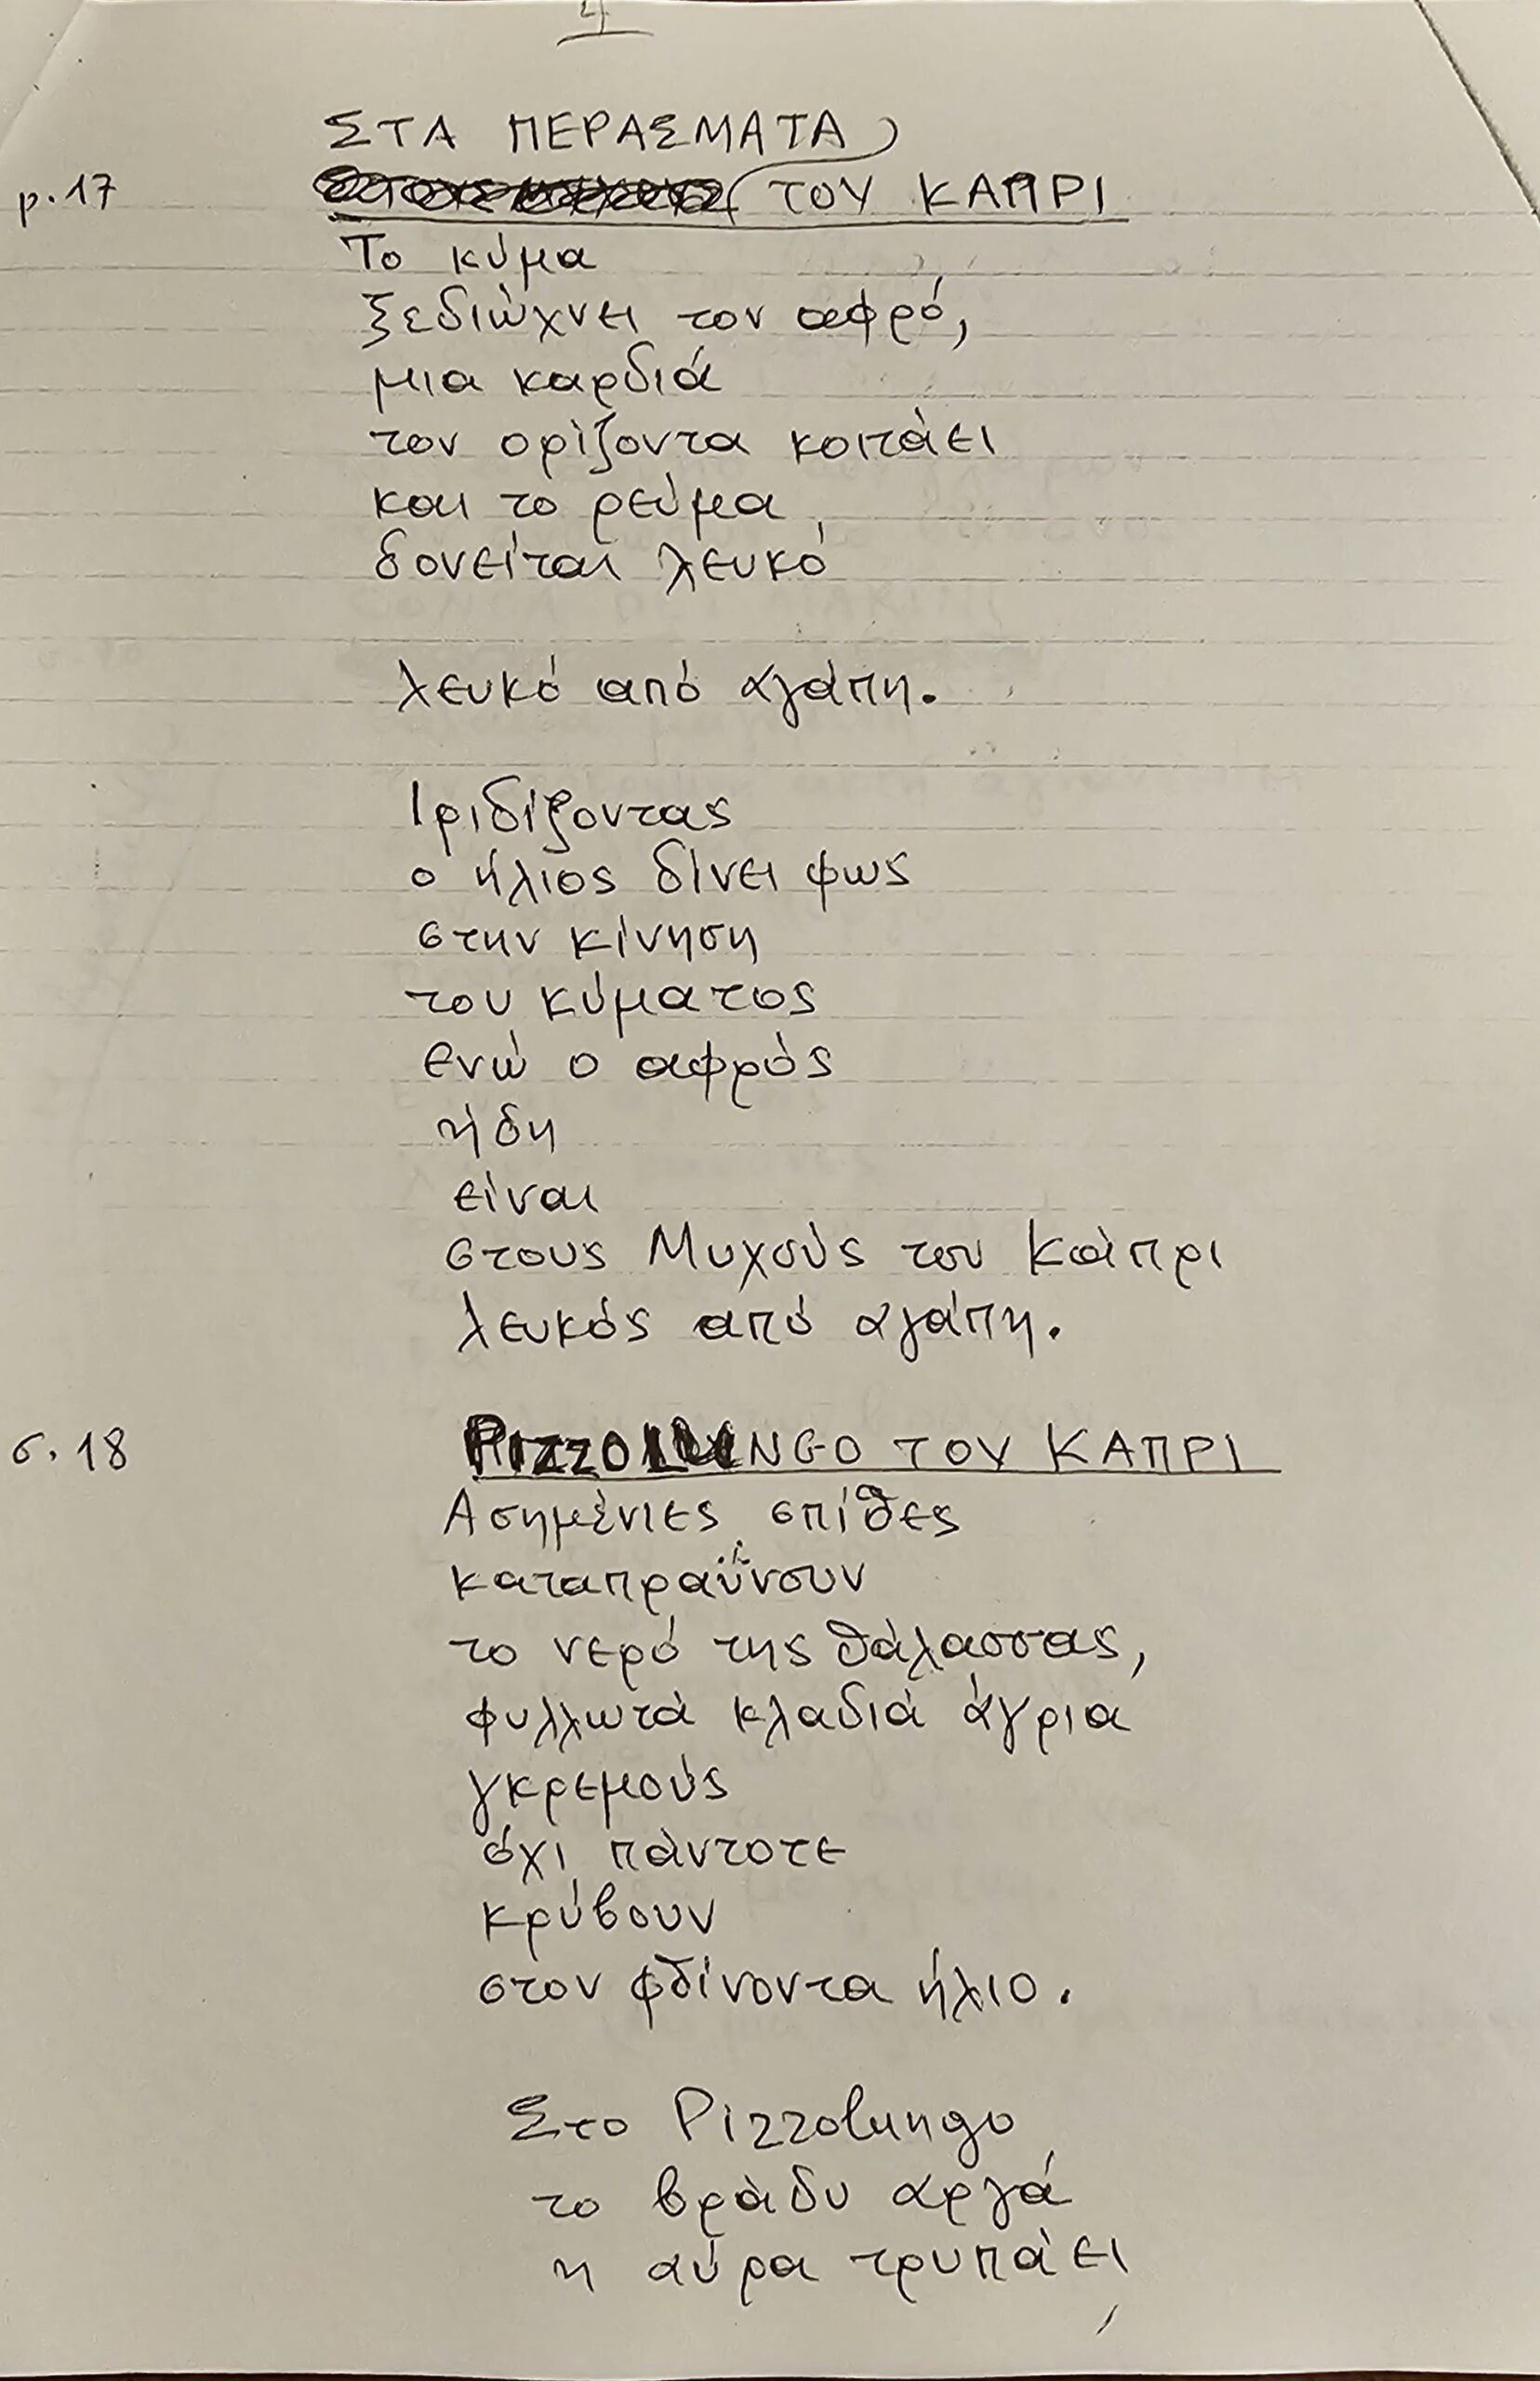 4
ΣΤΑ ΠΕΡΑΣΜΑΤΑ
p.17 ΤΟΥ ΚΑΠΡΙ
Το κύμα
ξεδιώχνει τον αφρό,
μια καρδιά
τον ορίζοντα κοιτάει
και το ρεύμα
δονείται λευκό
λευκό από αγάπη.
Ιριδίζοντας
ο ήλιος δίνει φως
στην κίνηση
του κύματος
ενώ ο αφρός
ήδη
είναι
στους Μυχούς του Κάπρι
λευκός από αγάπη.
σ.18 PIZZOLUNGO ΤΟΥ ΚΑΠΡΙ
Ασημένιες σπίθες
καταπραΰνουν
το νερό της θάλασσας,
φυλλωτά κλαδιά άγρια
γκρεμούς
όχι πάντοτε
κρύβουν
στον φθίνοντα ήλιο.
Στο Pizzolungo
το βράδυ αργά
η αύρα τρυπάει